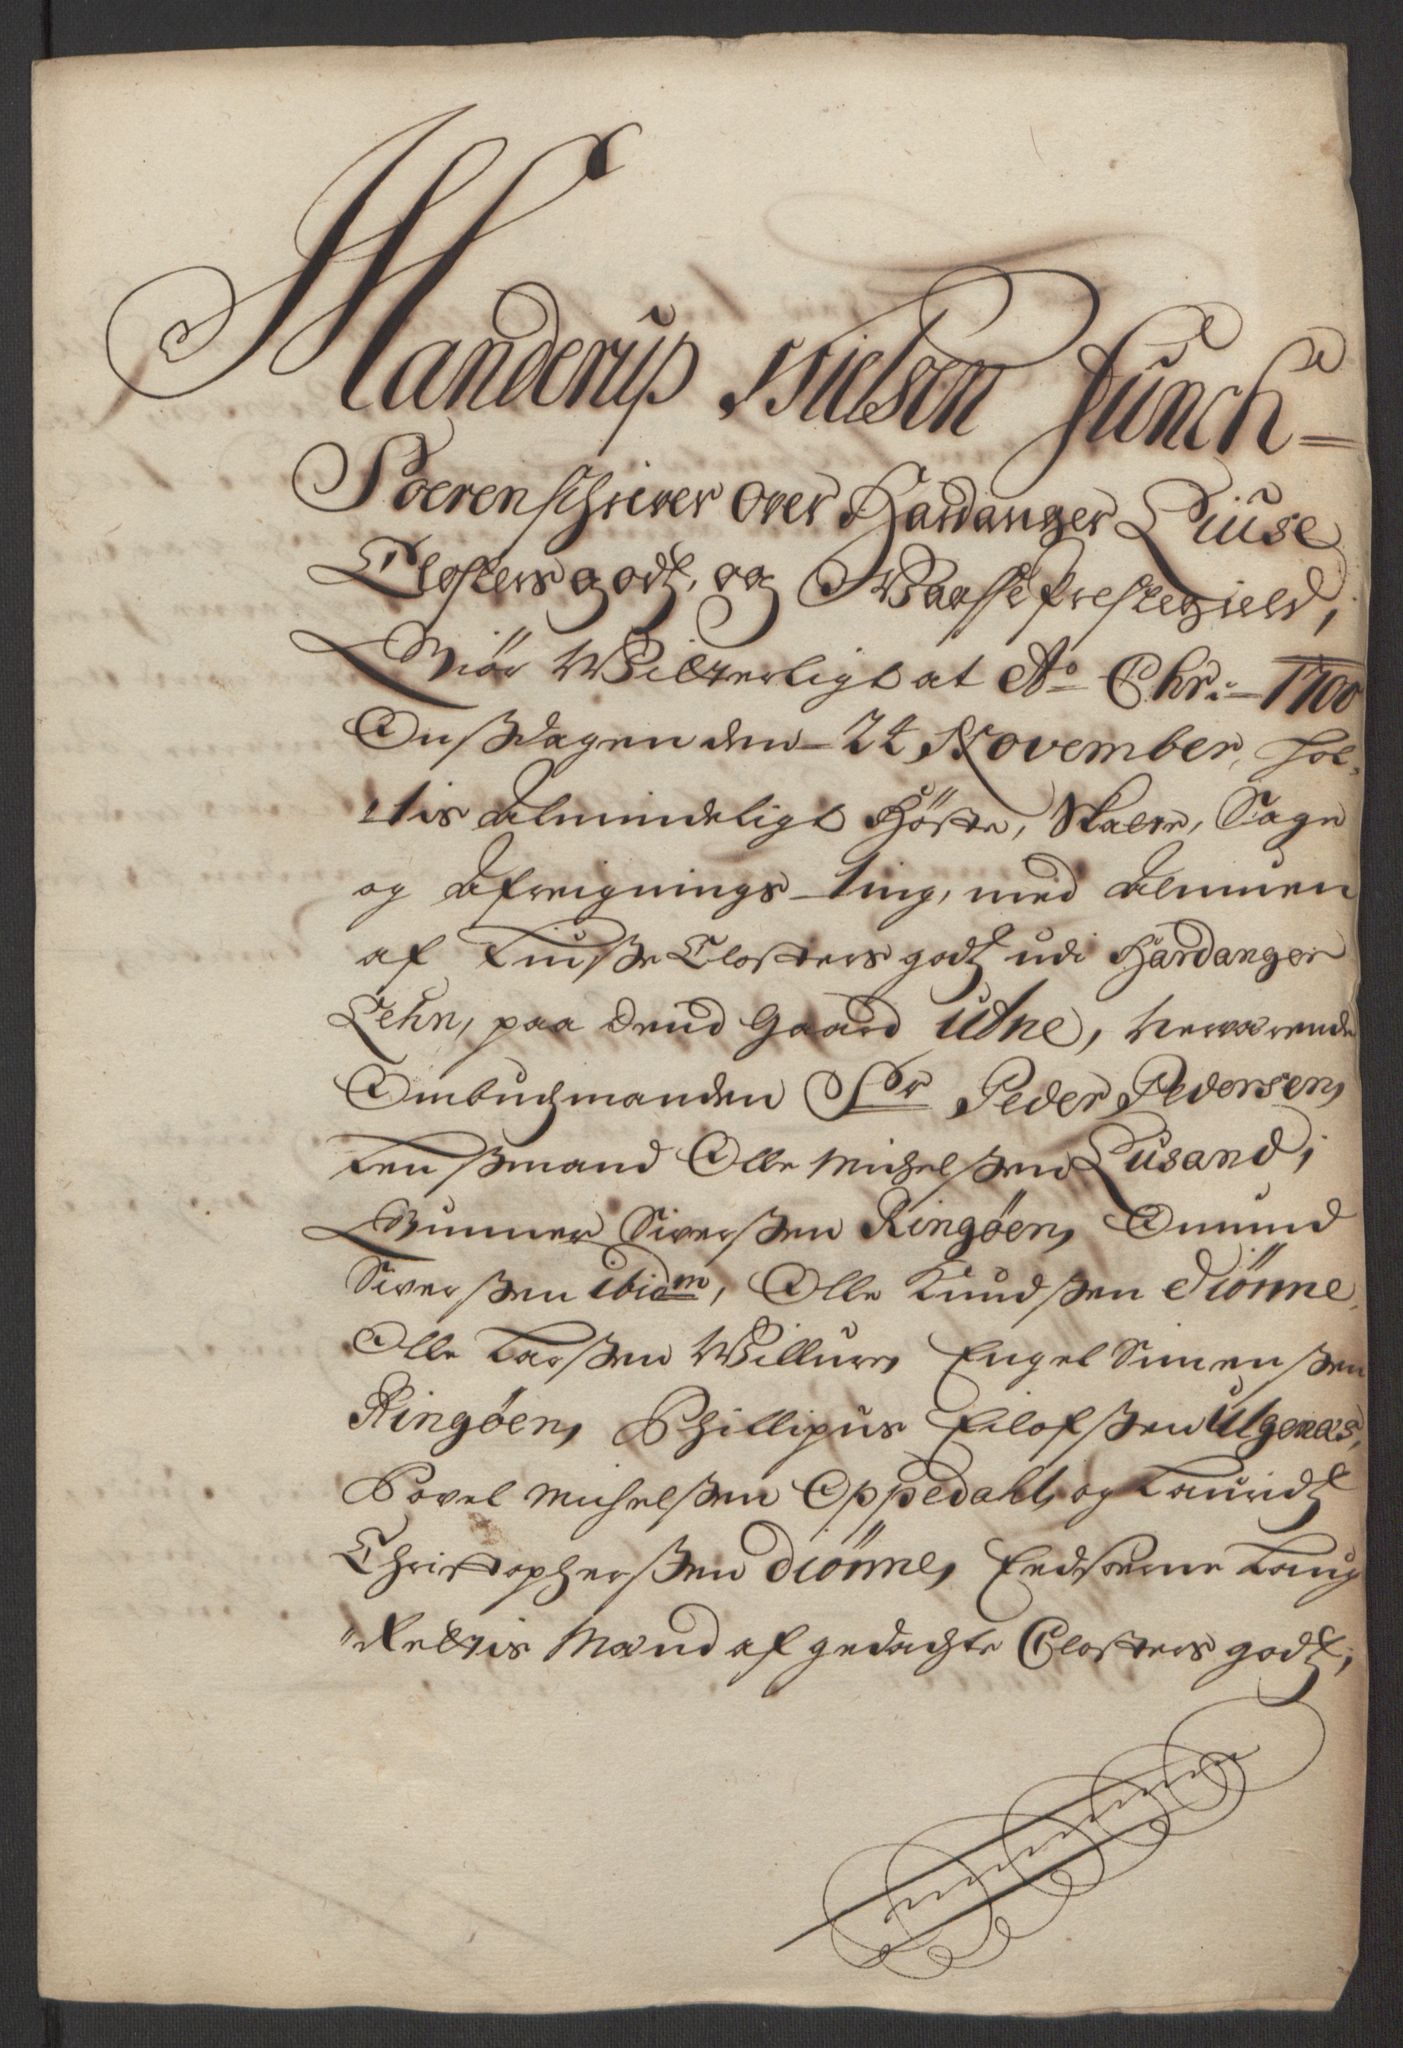 Manderup Nielsen Junch
Soerenschriver over Hardanger Liuse
Closters godtz, og Waasse Prestegield,
Giör Witterligt at Ao Chr: 1700
Onssdagen den 24 November, hol-
tis Almindeligt Höste, Skatte, Sage
og Afreignings-ting, med Almuen
af Liusse Closters godtz udi Hardanger
Lehn, paa dend Gaard Utne, nerwærende
Ombudzmanden Sr Peder Pedersen,
Lenssmand Olle Michelssen Lusand,
Gunner Siverssen Ringöen, Omund
Siverssen ibidm, Olle Knudssen Diönne,
Olle Larssen Willure, Engel Simenssen
Ringöen, Phillipus Eilofssen Utgenæs,
Povel Michelssen Oppedahl, og Lauridtz
Christopherssen Diönne, Eedsorne Laug
Rettis Mænd af gedachte Closters godtz,